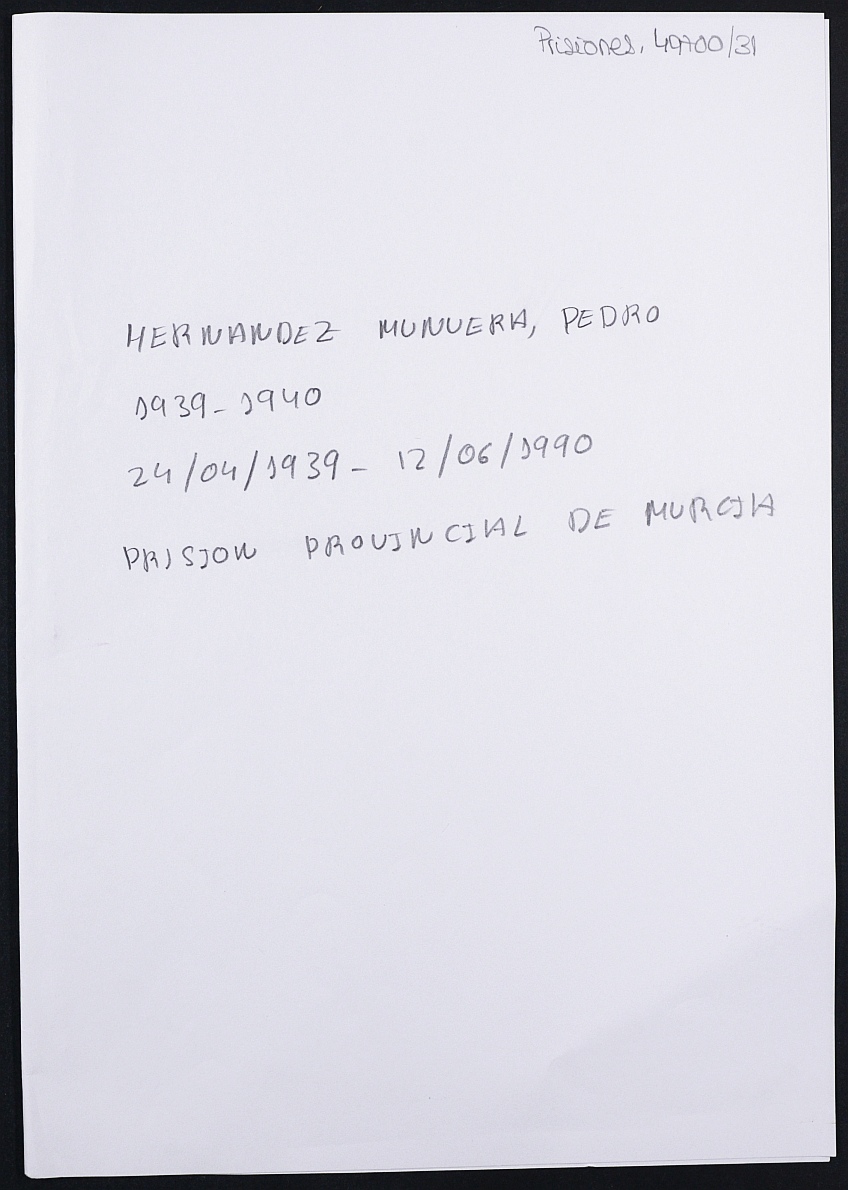 Prisiones, 49700/31
HERNANDEZ MUNUERA, PEDRO
1939-1940
24/04/1939 - 12/06/1990
PRISION PROVINCIAL DE MURCIA